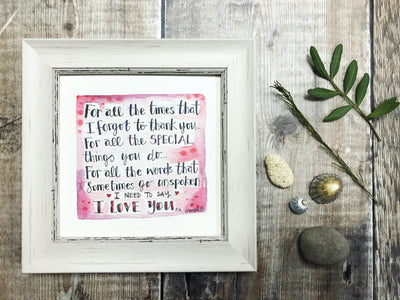 For all the times that
I forgot to thank you..
For all the SPECIAL
things you do..
For all the words that
Sometimes go unspoken
I NEED TO SAY
I LOVE YOU..